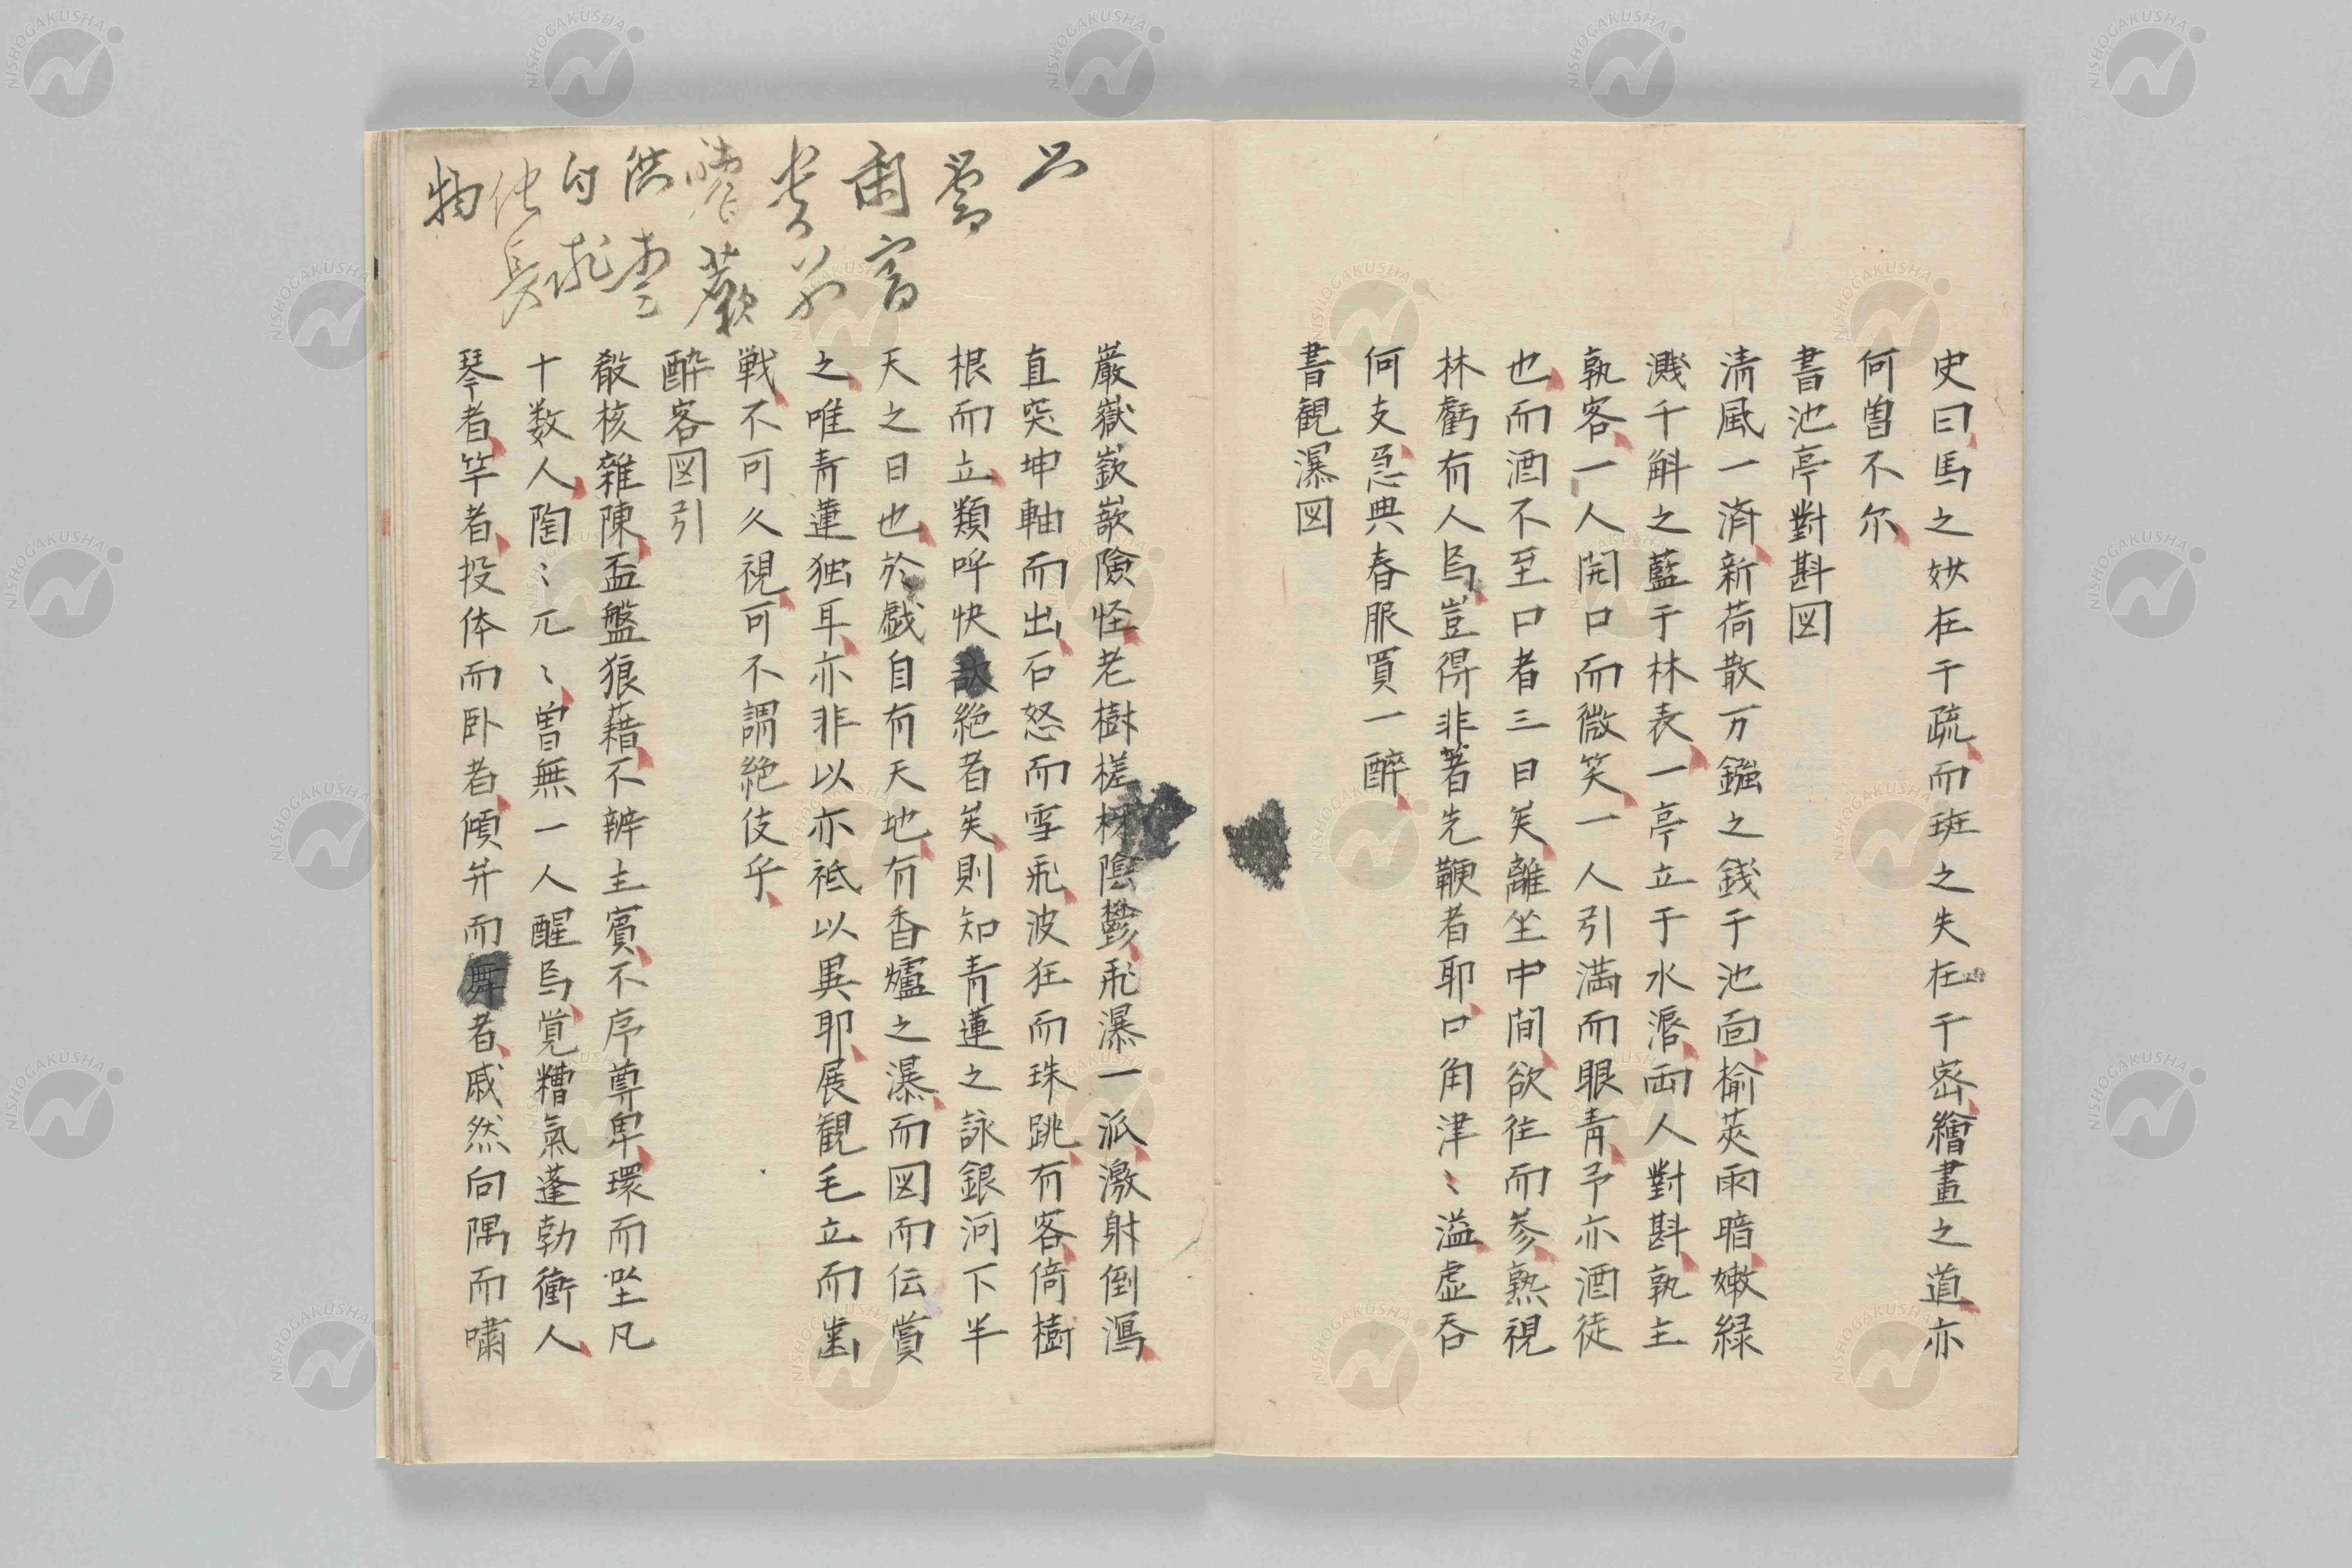 史曰馬之妙在于疏而班之失在于密繪畫之道亦
何曽不尓
書池亭對斟図
清風一済新荷散万鏹之銭于池面榆莢雨暗嫩緑
濺千斛之藍于林表一亭立于水漘両人對斟孰主
孰客一人開口而微笑一人引満而眼青予亦酒徒
也而酒不至口者三日矣離坐中間欲往而参熟視
林虧有人焉豈得非著先鞭者耶口角津〻溢虚呑
何支急典春服買一醉
書観瀑図
巌嶽嶔嶔險怪老樹槎枒陰鬱飛瀑一派激射倒瀉
直突坤軸而出石怒而雪飛波狂而珠跳有客倚樹
根而立類呼快絶者矣則知青蓮之詠銀河下半
天之日也於戯自有天地有香爐之瀑而図而伝賞
之唯青蓮独耳亦非以亦祗以異耶展観毛立而歯
戦不可久視可不謂絶伎乎
酔客図引
殽核雜陳盃盤狼藉不辨主賓不序尊卑環而坐凡
十数人陶〻兀〻曽無一人醒焉覚糟氣蓬勃衝人
琴者竿者投体而卧者傾弁而舞者戚然向隅而嘯
NISHOGAKUSHA